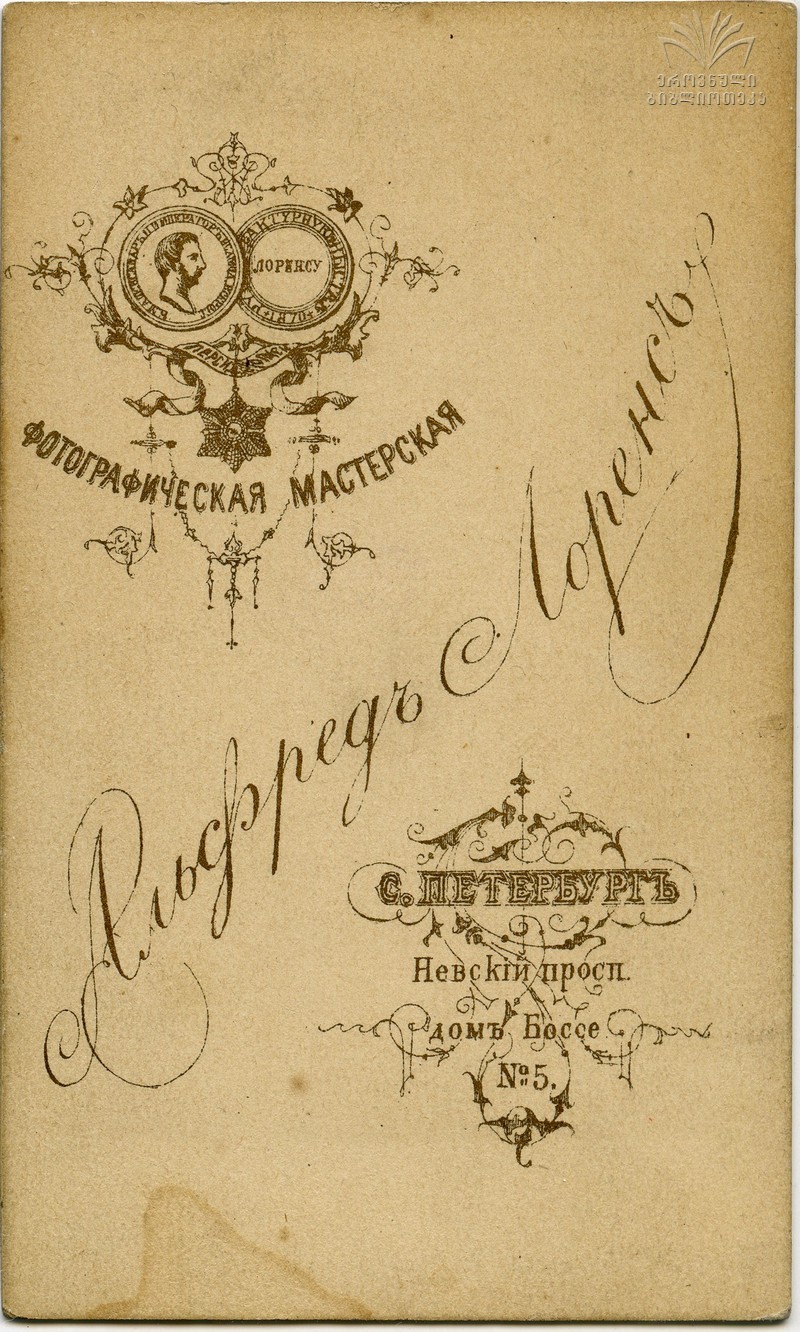 ეროვნული
ბიბლიოთეკა
ЛОРЕНСУ
1870
ФОТОГРАФИЧЕСКАЯ МАСТЕРСКАЯ
Альфредъ Лоренсъ
С. ПЕТЕРБУРГЪ
Невскій просп.
домъ Боссе
№ 5.